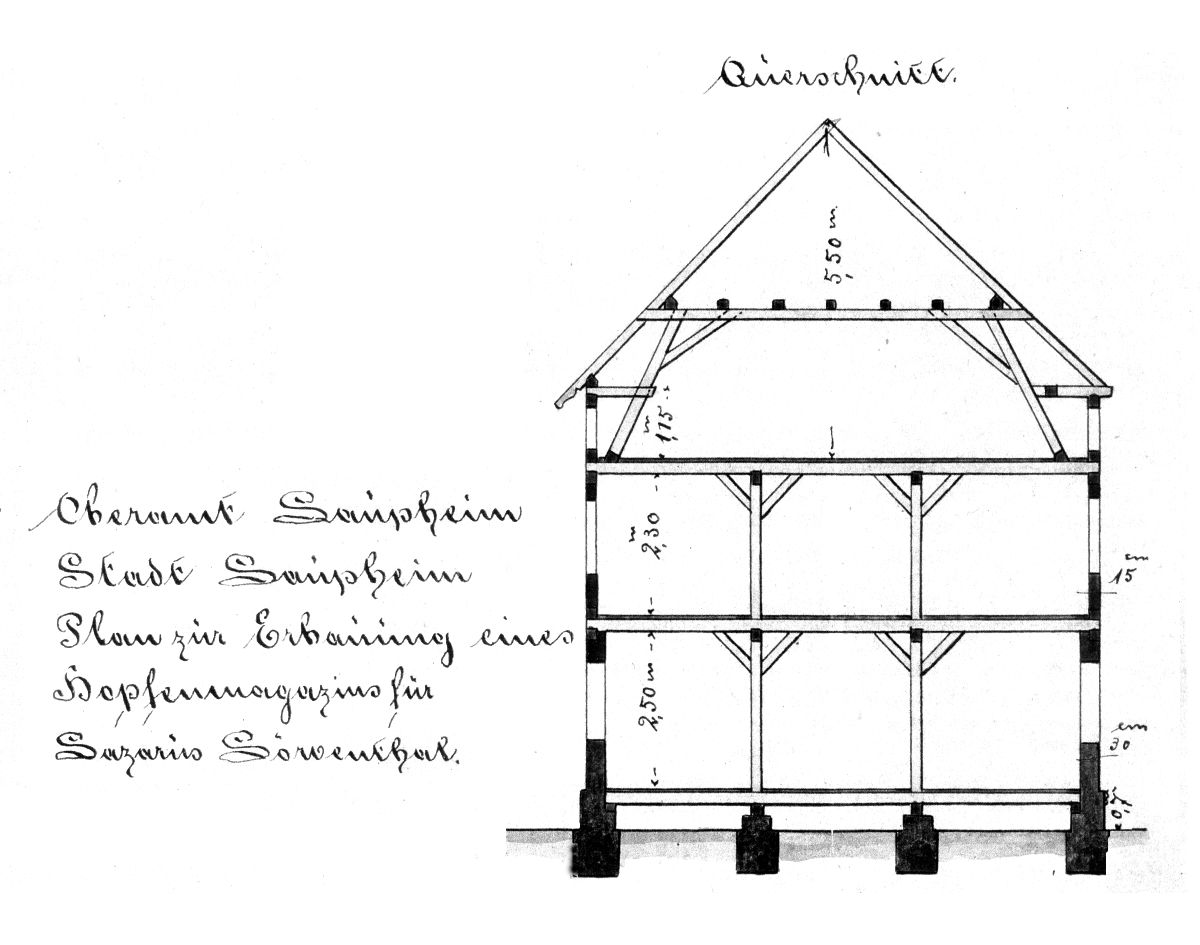 Querschnitt.
5,50 m
1,75 m
Oberamt Laupheim
2,30 m
Stadt Laupheim
15 cm
Plan zur Erbauung eines
Hopfenmagazins für
2,50 m
30 cm
Lazarus Löwenthal.
0,7 m